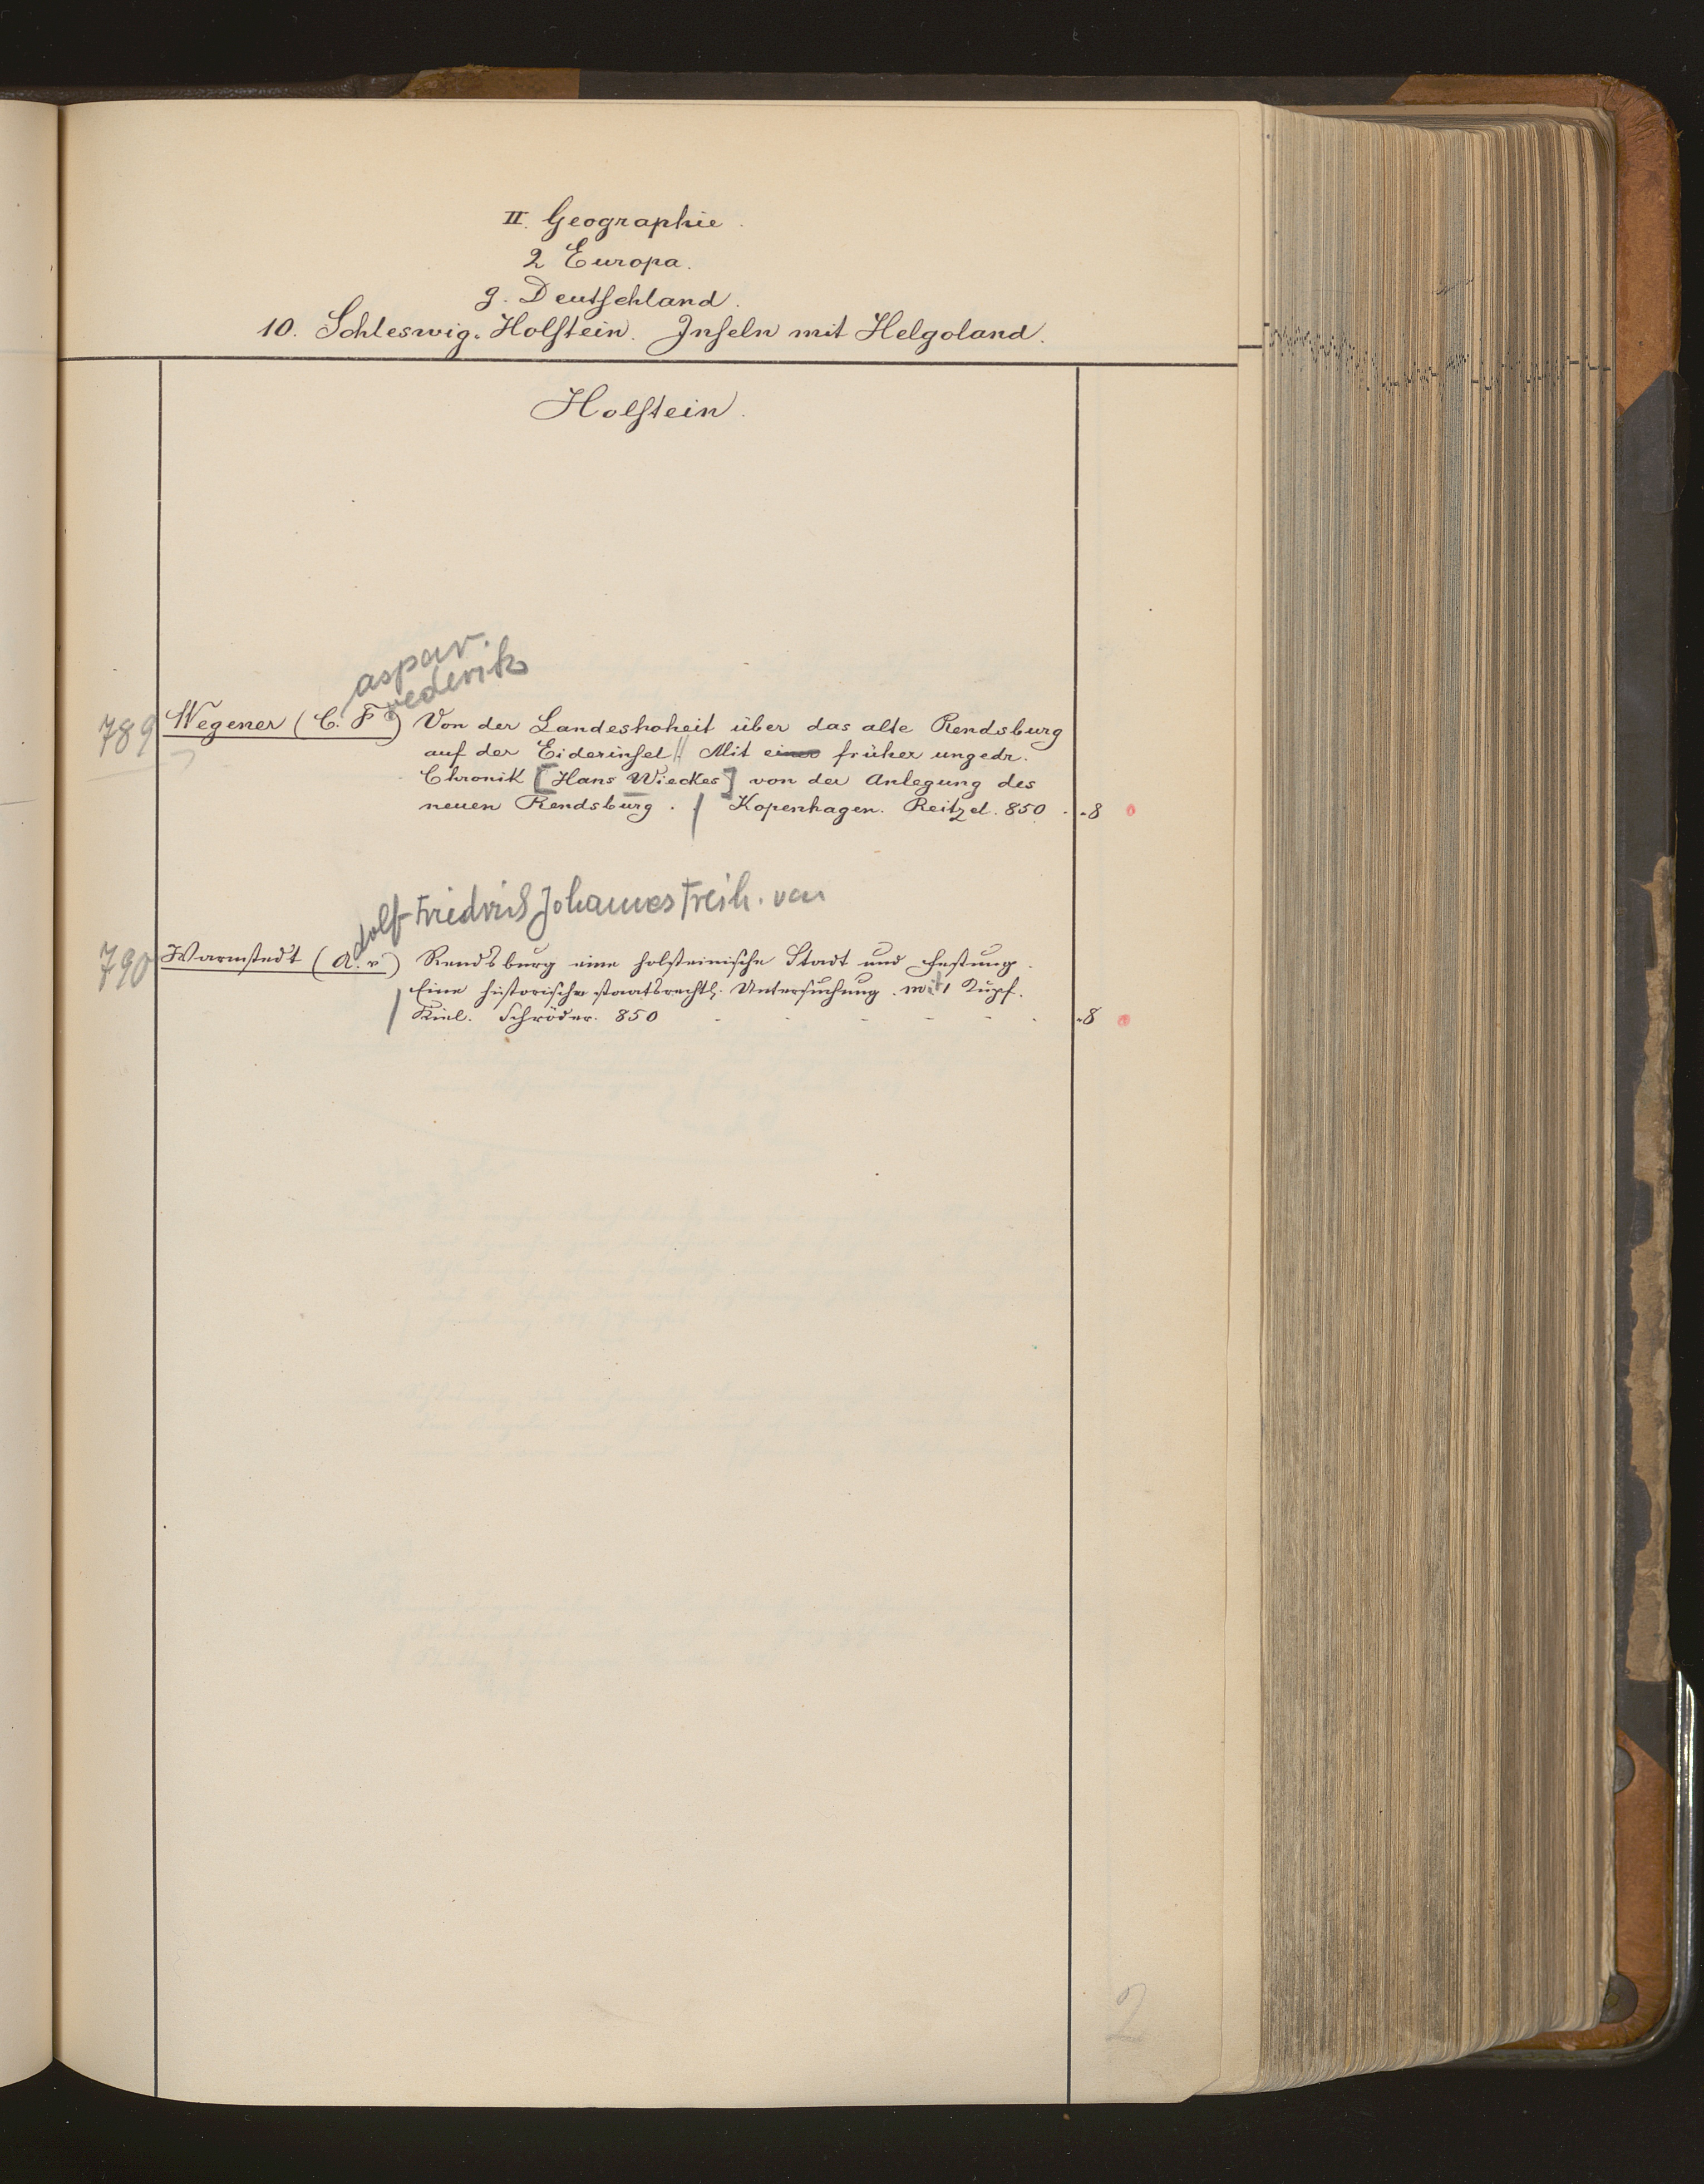 II. Geographie.
2 Europa.
g. Deutschland.
10. Schleswig-Holstein. Inseln mit Helgoland.
Holstein.
aspar.
rederik
789 Wegener (C. F) Von der Landeshoheit über das alte Rendsburg
auf der Eiderinsel // Mit einer früher ungedr.
Chronik [Hans Wieckes] von der Anlegung des
neuen Rendsburg. / Kopenhagen. Reitzel. 850 . -8
dolf Friedrich Johannes Freih. von
790 Warnstedt (A. v) Rendsburg eine holsteinische Stadt und Festung.
Eine historische staatsrechtl. Untersuchung. mit 1 Kupf.
/ Kiel. Schröder. 850 - - - - - . -8
2